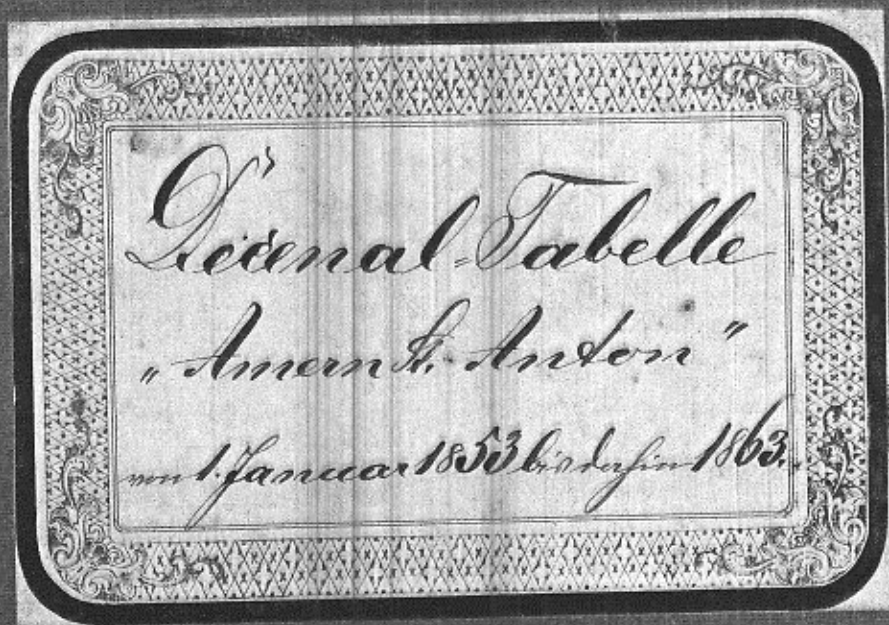 Decenal-Tabelle
„Amern St. Anton"
von 1. Januar 1853 bis dahin 1863.